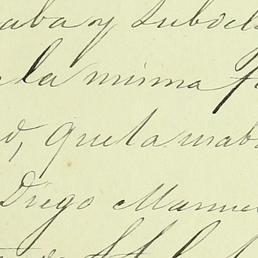 aba y Subdel
la misma f
d, que la usab
Diego Manue